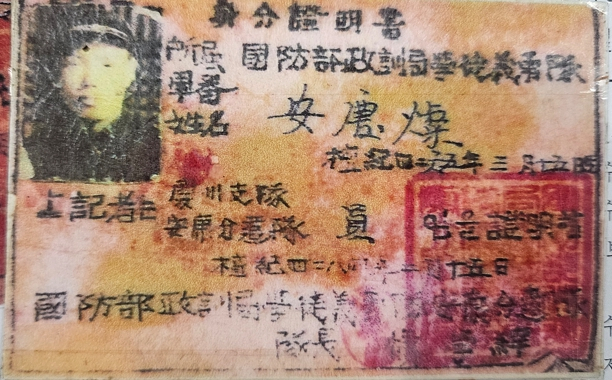 身分證明書
所屬 國防部政訓局學徒義勇隊
軍番
姓名 安慶燦
檀紀四二六五年三月十五日
上記者는 慶州支隊
安康分遣隊 員 임을 證明함
檀紀四二八四年 月十五日
國防部政訓局學徒義 安康分遣隊
隊長